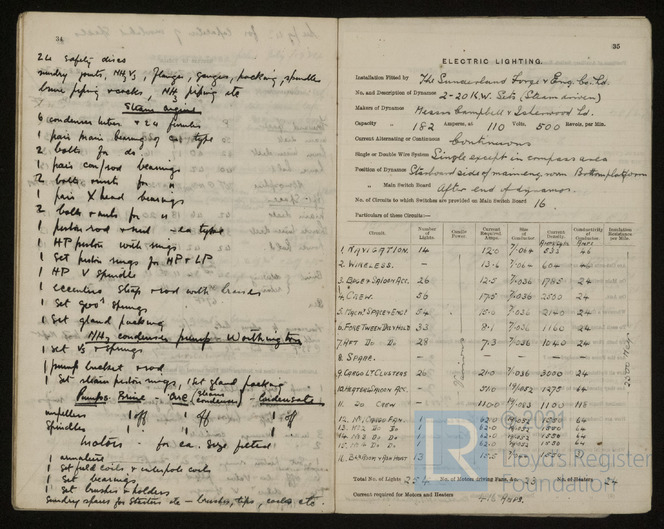 34
24 safety discs
sundry joints, NH3 Vs, flanges, gauges, packing, spindles
brine piping & cocks, NH3 piping etc
Steam engine
6 condenser tubes & 24 ferrules
1 pair main bearings of ea type
2 bolts for do
1 pair con/rod bearings
2 bolts & nuts for "
1 pair X head bearings
2 bolts & nuts for "
1 piston rod & nut - ea type
1 HP piston with rings
1 Set piston rings for HP & LP
1 HP V spindle
1 eccentric strap & rod with
1 set gov springs
1 set gland packing
NH3 condenser pumps - Worthington
1 set Vs & springs
1 pump bucket & rod
1 Set steam piston rings, 1 Set gland packing
Pumps Brine - circ (steam condenser) - Condensate
impellers 1 off 1 off 1 off
Spindles 1 " 1 " 1 "
Motors - for ea. size fitted
1 armature
1 set field coils & interpole coils
1 Set bearings
1 Set brushes & holders
Sundry spares for starters etc - brushes, tips, coils etc.
35
ELECTRIC LIGHTING.
Installation fitted by The Sunderland Forge & Eng. Co. Ld.
No. and Description of Dynamos 2-20 K.W. Sets (Steam driven)
Makers of Dynamos Messrs Campbell & Isherwood Ld.
Capacity " 182 Amperes, at 110 Volts, 500 Revols. per Min.
Current Alternating or Continuous Continuous
Single or Double Wire System Single except in compass area
Position of Dynamos Starboard side of main eng. room Bottom platform
" Main Switch Board After end of dynamos.
No. of Circuits to which Switches are provided on Main Switch Board 16.
Particulars of these Circuits:—
Circuit. Number of Lights. Candle Power. Current Required Amps. Size of Conductor. Current Density. Conductivity of Conductor. Insulation Resistance per Mile.
1. NAVIGATION. 14 12.0 7/.064 533 46
2. WIRELESS. — 13.6 7/.064 604 46
3. ENG & SALOON ACC. 26 12.5 7/.036 1785 24
4. CREW. 50 17.5 7/.036 2500 24
5. MACHY SPACE & ENG. 54 15.0 7/.036 2140 24
6. FORE TWEEN DKS & HOLD 33 8.1 7/.036 1160 24
7. AFT DO DO 28 7.3 7/.036 1040 24
8. SPARE. — — — — —
9. CARGO LT CLUSTERS 26 21.0 7/.036 3000 24
10. HEATERS SALOON ACC. 51.0 19/.052 1275 64
11. DO CREW — 110.0 19/.083 1100 118
12. No 1 CARGO FAN. 1 62.0 19/.052 1550 64
13. No 2 DO DO 1 62.0 19/.052 1550 64
14. No 3 DO DO 1 62.0 19/.052 1550 64
15. No 4 DO DO 1 62.0 19/.052 1550 64
Total No. of Lights 254 No. of Motors driving Fans, &c. 23 No. of Heaters 24
Current required for Motors and Heaters 416 Amps.
LR
© 2021
Lloyd's Register
Foundation